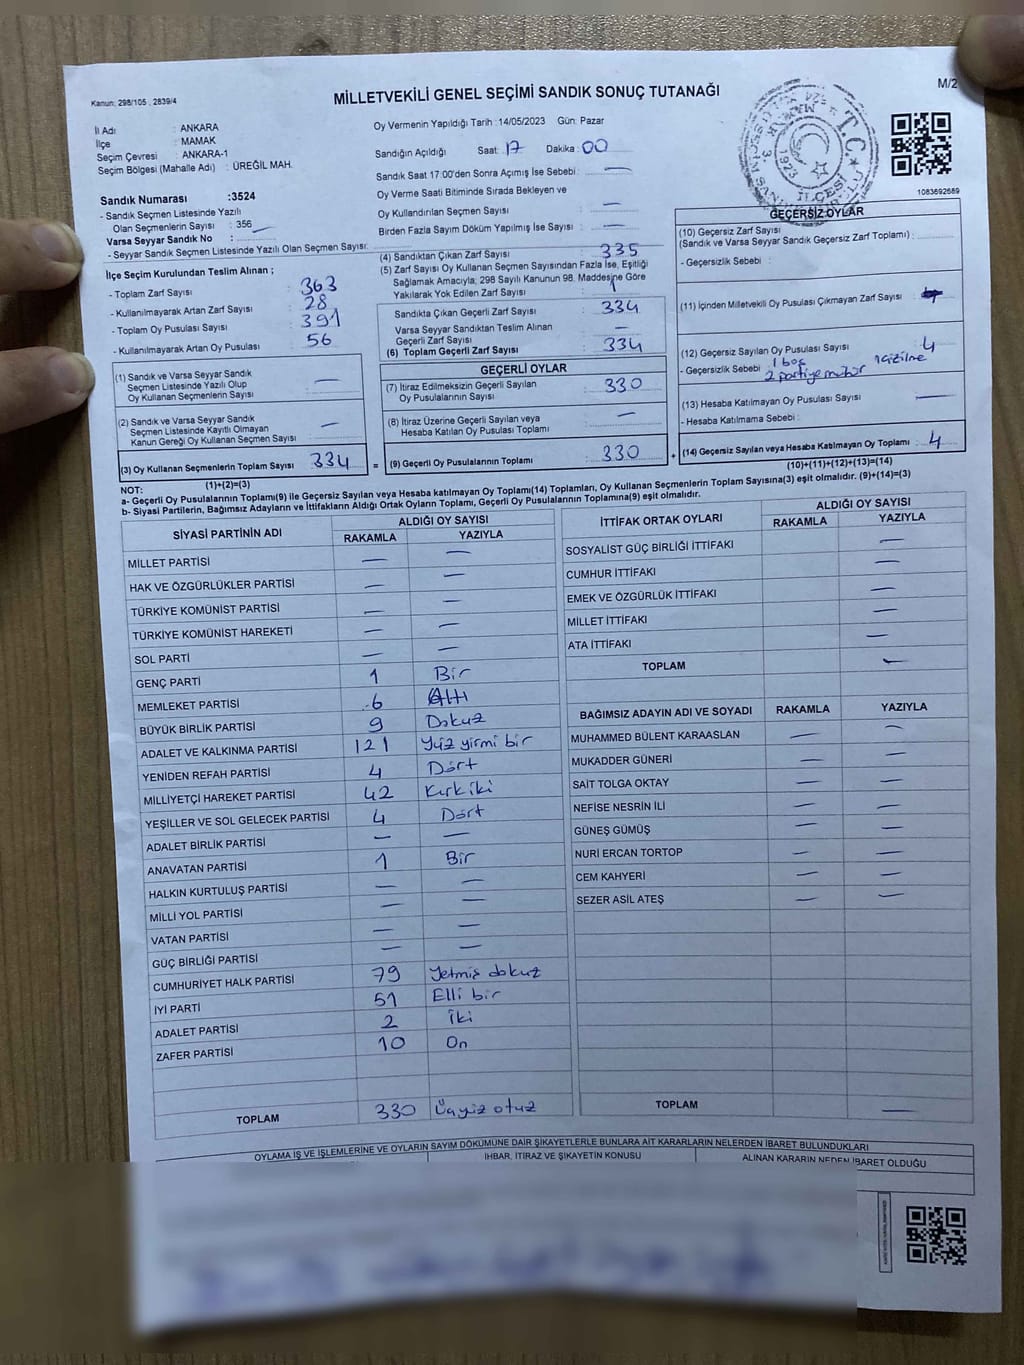 Kanun: 298/105 , 2839/4
MİLLETVEKİLİ GENEL SEÇİMİ SANDIK SONUÇ TUTANAĞI
M/2
İl Adı : ANKARA
İlçe : MAMAK
Seçim Çevresi : ANKARA-1
Seçim Bölgesi (Mahalle Adı) : ÜREĞİL MAH.
Sandık Numarası :3524
- Sandık Seçmen Listesinde Yazılı
Olan Seçmenlerin Sayısı : 356
Varsa Seyyar Sandık No :
- Seyyar Sandık Seçmen Listesinde Yazılı Olan Seçmen Sayısı:
İlçe Seçim Kurulundan Teslim Alınan ;
- Toplam Zarf Sayısı : 363
- Kullanılmayarak Artan Zarf Sayısı : 28
- Toplam Oy Pusulası Sayısı : 391
- Kullanılmayarak Artan Oy Pusulası : 56
(1) Sandık ve Varsa Seyyar Sandık
Seçmen Listesinde Yazılı Olup
Oy Kullanan Seçmenlerin Sayısı : —
(2) Sandık ve Varsa Seyyar Sandık
Seçmen Listesinde Kayıtlı Olmayan
Kanun Gereği Oy Kullanan Seçmen Sayısı : —
(3) Oy Kullanan Seçmenlerin Toplam Sayısı : 334 =
(1)+(2)=(3)
Oy Vermenin Yapıldığı Tarih :14/05/2023 Gün: Pazar
Sandığın Açıldığı Saat: 17 Dakika : 00
Sandık Saat 17:00'den Sonra Açılmış İse Sebebi : —
Oy Verme Saati Bitiminde Sırada Bekleyen ve
Oy Kullandırılan Seçmen Sayısı : —
Birden Fazla Sayım Döküm Yapılmış İse Sayısı : —
(4) Sandıktan Çıkan Zarf Sayısı : 335
(5) Zarf Sayısı Oy Kullanan Seçmen Sayısından Fazla İse, Eşitliği
Sağlamak Amacıyla, 298 Sayılı Kanunun 98. Maddesine Göre
Yakılarak Yok Edilen Zarf Sayısı : 1
Sandıkta Çıkan Geçerli Zarf Sayısı : 334
Varsa Seyyar Sandıktan Teslim Alınan
Geçerli Zarf Sayısı : —
(6) Toplam Geçerli Zarf Sayısı : 334
GEÇERLİ OYLAR
(7) İtiraz Edilmeksizin Geçerli Sayılan
Oy Pusulalarının Sayısı : 330
(8) İtiraz Üzerine Geçerli Sayılan veya
Hesaba Katılan Oy Pusulası Toplamı : —
(9) Geçerli Oy Pusulalarının Toplamı : 330 +
1083692689
GEÇERSİZ OYLAR
(10) Geçersiz Zarf Sayısı
(Sandık ve Varsa Seyyar Sandık Geçersiz Zarf Toplamı) :
- Geçersizlik Sebebi :
(11) İçinden Milletvekili Oy Pusulası Çıkmayan Zarf Sayısı :
(12) Geçersiz Sayılan Oy Pusulası Sayısı : 4
- Geçersizlik Sebebi : 1 boş
2 partiye mühür
(13) Hesaba Katılmayan Oy Pusulası Sayısı : —
- Hesaba Katılmama Sebebi :
(14) Geçersiz Sayılan veya Hesaba Katılmayan Oy Toplamı : 4
(10)+(11)+(12)+(13)=(14)
NOT:
a- Geçerli Oy Pusulalarının Toplamı(9) ile Geçersiz Sayılan veya Hesaba katılmayan Oy Toplamı(14) Toplamları, Oy Kullanan Seçmenlerin Toplam Sayısına(3) eşit olmalıdır. (9)+(14)=(3)
b- Siyasi Partilerin, Bağımsız Adayların ve İttifakların Aldığı Ortak Oyların Toplamı, Geçerli Oy Pusulalarının Toplamına(9) eşit olmalıdır.
SİYASİ PARTİNİN ADI ALDIĞI OY SAYISI
RAKAMLA YAZIYLA
MİLLET PARTİSİ — —
HAK VE ÖZGÜRLÜKLER PARTİSİ — —
TÜRKİYE KOMÜNİST PARTİSİ — —
TÜRKİYE KOMÜNİST HAREKETİ — —
SOL PARTİ — —
GENÇ PARTİ 1 Bir
MEMLEKET PARTİSİ 6 Altı
BÜYÜK BİRLİK PARTİSİ 9 Dokuz
ADALET VE KALKINMA PARTİSİ 121 Yüz yirmi bir
YENİDEN REFAH PARTİSİ 4 Dört
MİLLİYETÇİ HAREKET PARTİSİ 42 Kırk iki
YEŞİLLER VE SOL GELECEK PARTİSİ 4 Dört
ADALET BİRLİK PARTİSİ — —
ANAVATAN PARTİSİ 1 Bir
HALKIN KURTULUŞ PARTİSİ — —
MİLLİ YOL PARTİSİ — —
VATAN PARTİSİ — —
GÜÇ BİRLİĞİ PARTİSİ — —
CUMHURİYET HALK PARTİSİ 79 Yetmiş dokuz
İYİ PARTİ 51 Elli bir
ADALET PARTİSİ 2 İki
ZAFER PARTİSİ 10 On
TOPLAM 330 Üçyüz otuz
İTTİFAK ORTAK OYLARI ALDIĞI OY SAYISI
RAKAMLA YAZIYLA
SOSYALİST GÜÇ BİRLİĞİ İTTİFAKI —
CUMHUR İTTİFAKI —
EMEK VE ÖZGÜRLÜK İTTİFAKI —
MİLLET İTTİFAKI —
ATA İTTİFAKI —
TOPLAM —
BAĞIMSIZ ADAYIN ADI VE SOYADI RAKAMLA YAZIYLA
MUHAMMED BÜLENT KARAASLAN — —
MUKADDER GÜNERİ — —
SAİT TOLGA OKTAY — —
NEFİSE NESRİN İLİ — —
GÜNEŞ GÜMÜŞ — —
NURİ ERCAN TORTOP — —
CEM KAHYERİ — —
SEZER ASİL ATEŞ — —
TOPLAM —
OYLAMA İŞ VE İŞLEMLERİNE VE OYLARIN SAYIM DÖKÜMÜNE DAİR ŞİKAYETLERLE BUNLARA AİT KARARLARIN NELERDEN İBARET BULUNDUKLARI
İHBAR, İTİRAZ VE ŞİKAYETİN KONUSU ALINAN KARARIN NEDEN İBARET OLDUĞU